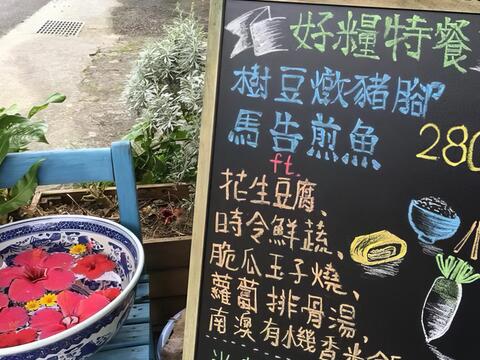 好糧特餐
樹豆燉豬腳
馬告煎魚
280
ft.
花生豆腐、
時令鮮蔬、
脆瓜玉子燒、
蘿蔔排骨湯,
南澳有機香米